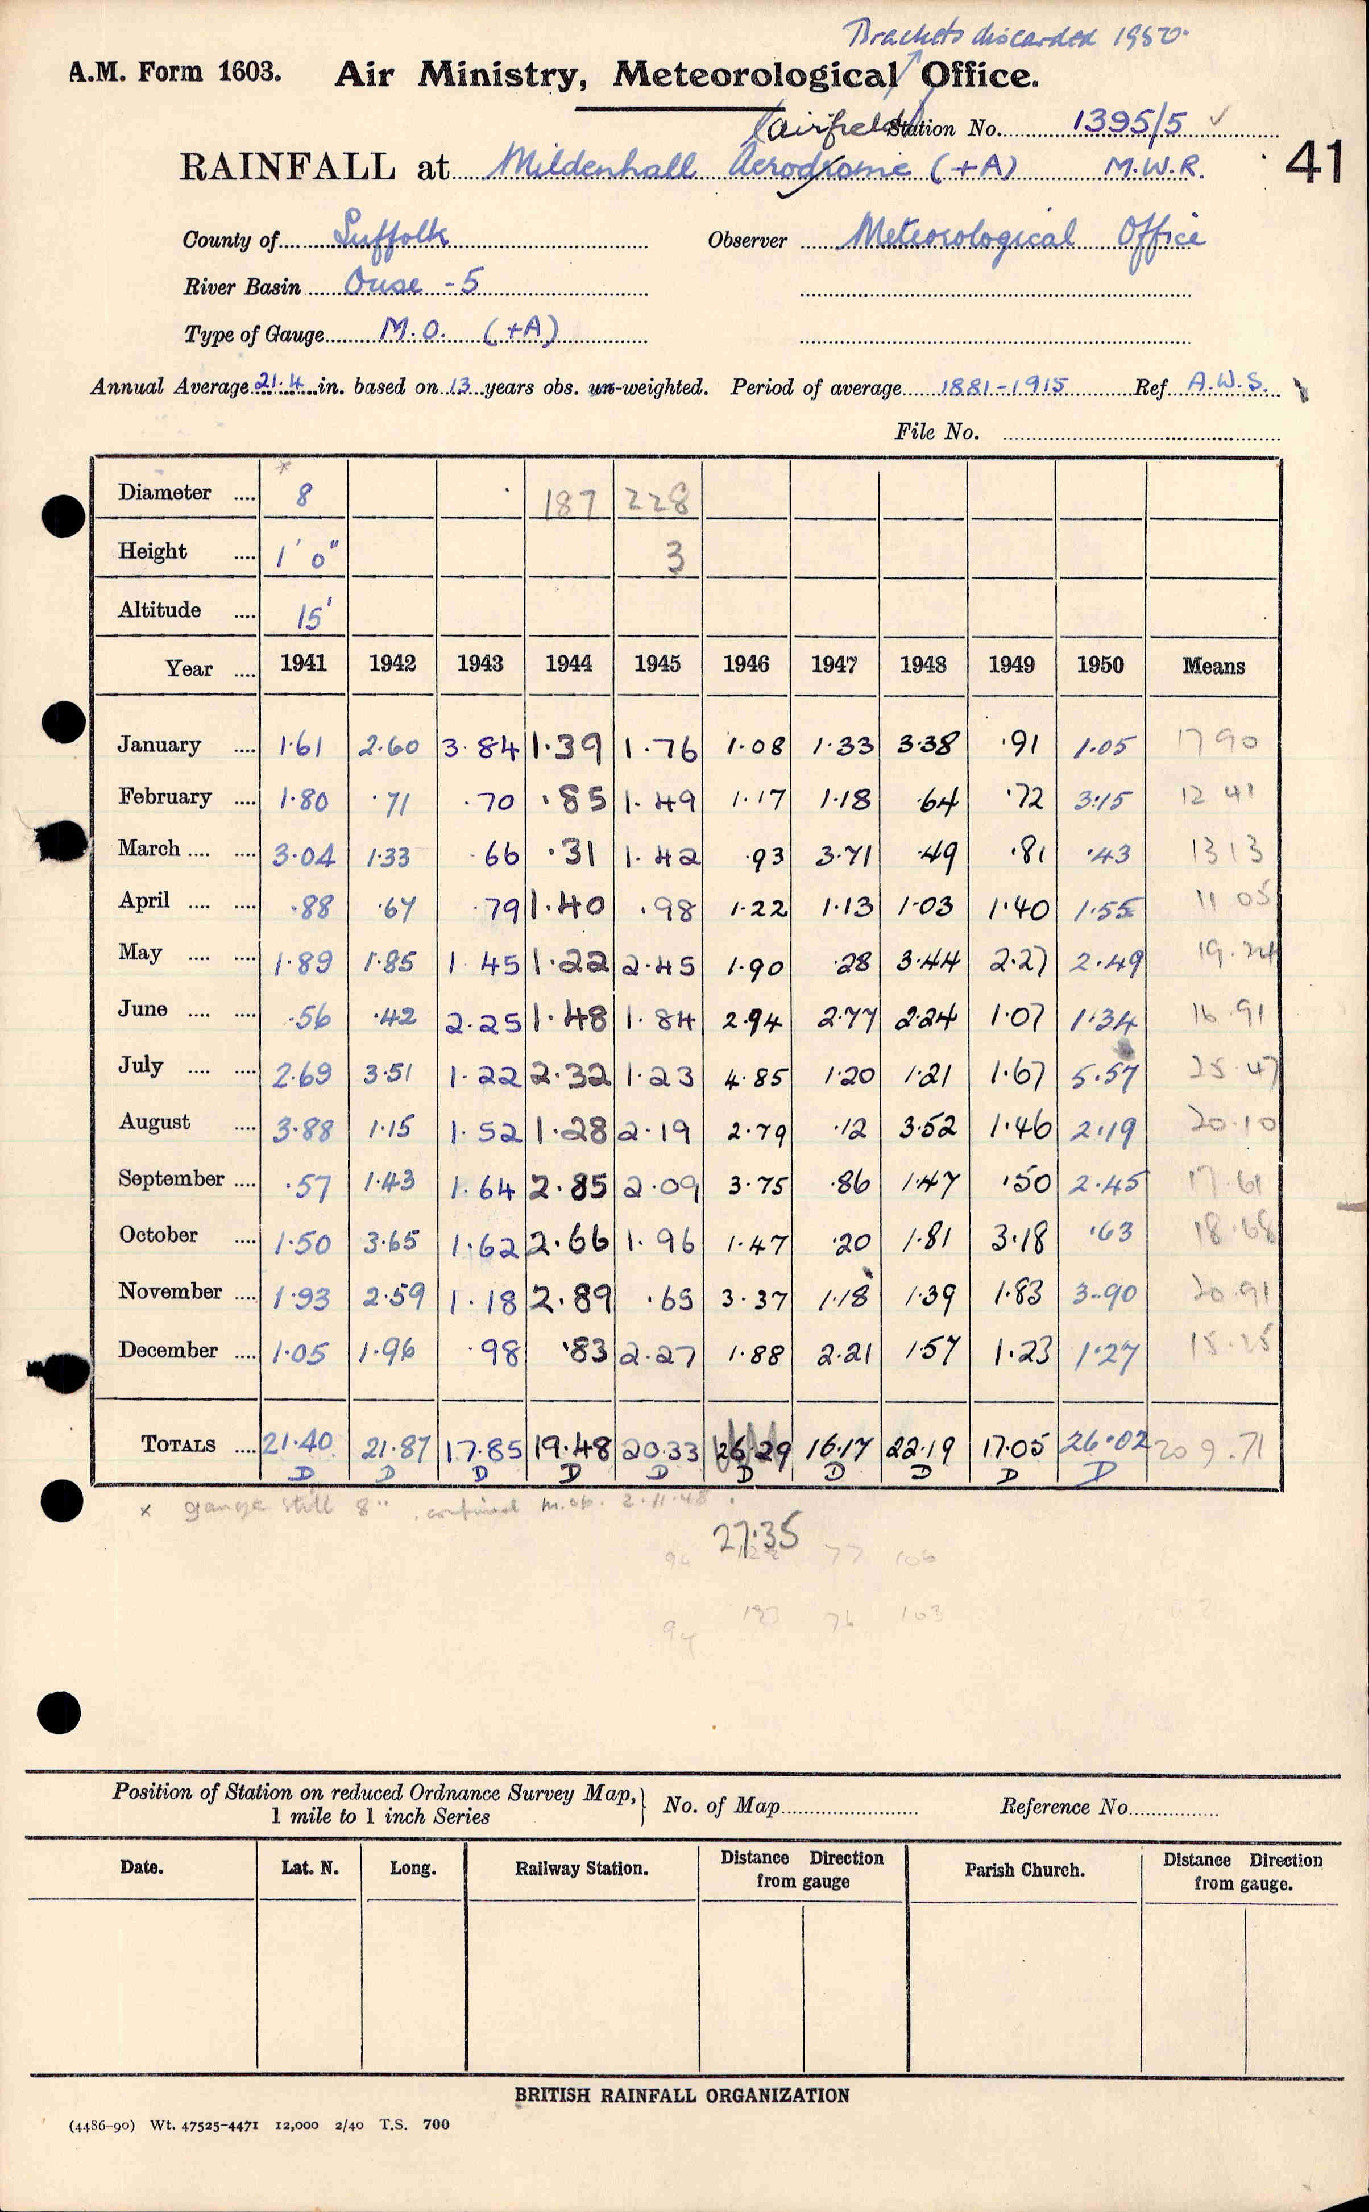 Brackets discarded 1950.
A.M. Form 1603. Air Ministry, Meteorological Office.
(airfield) Station No. 1395/5 ✓
RAINFALL at Mildenhall Aerodrome (+A) M.W.R. 41
County of Suffolk Observer Meteorological Office
River Basin Ouse - 5
Type of Gauge M.O. (+A)
Annual Average 21.4 in. based on 13 years obs. un-weighted. Period of average 1881-1915 Ref A.W.S.
File No.
Diameter .... * 8 187 228
Height .... 1' 0" 3
Altitude .... 15'
Year .... 1941 1942 1943 1944 1945 1946 1947 1948 1949 1950 Means
January .... 1.61 2.60 3.84 1.39 1.76 1.08 1.33 3.38 .91 1.05 17 90
February .... 1.80 .71 .70 .85 1.49 1.17 1.18 .64 .72 3.15 12 41
March .... .... 3.04 1.33 .66 .31 1.42 .93 3.71 .49 .81 .43 13 13
April .... .... .88 .67 .79 1.40 .98 1.22 1.13 1.03 1.40 1.55 11 05
May .... .... 1.89 1.85 1 45 1.22 2.45 1.90 .28 3.44 2.27 2.49 19.24
June .... .... .56 .42 2.25 1.48 1.84 2.94 2.77 2.24 1.07 1.34 16.91
July .... .... 2.69 3.51 1.22 2.32 1.23 4.85 1.20 1.21 1.67 5.57 25.47
August .... 3.88 1.15 1.52 1.28 2.19 2.79 .12 3.52 1.46 2.19 20.10
September .... .57 1.43 1.64 2.85 2.09 3.75 .86 1.47 .50 2.45 17.61
October .... 1.50 3.65 1.62 2.66 1.96 1.47 .20 1.81 3.18 .63 18.68
November .... 1.93 2.59 1.18 2.89 .65 3.37 1.18 1.39 1.83 3.90 20.91
December .... 1.05 1.96 .98 .83 2.27 1.88 2.21 1.57 1.23 1.27 15.25
TOTALS .... 21.40 21.87 17.85 19.48 20.33 26.29 16.17 22.19 17.05 26.02 209.71
D D D D D D D D D D
x gauge still 8" . confirmed 2.11.48 .
27.35
77 106
94 76 103
Position of Station on reduced Ordnance Survey Map, } No. of Map Reference No.
1 mile to 1 inch Series
Date. Lat. N. Long. Railway Station. Distance Direction from gauge Parish Church. Distance Direction from gauge.
BRITISH RAINFALL ORGANIZATION
(4486-90) Wt. 47525-4471 12,000 2/40 T.S. 700